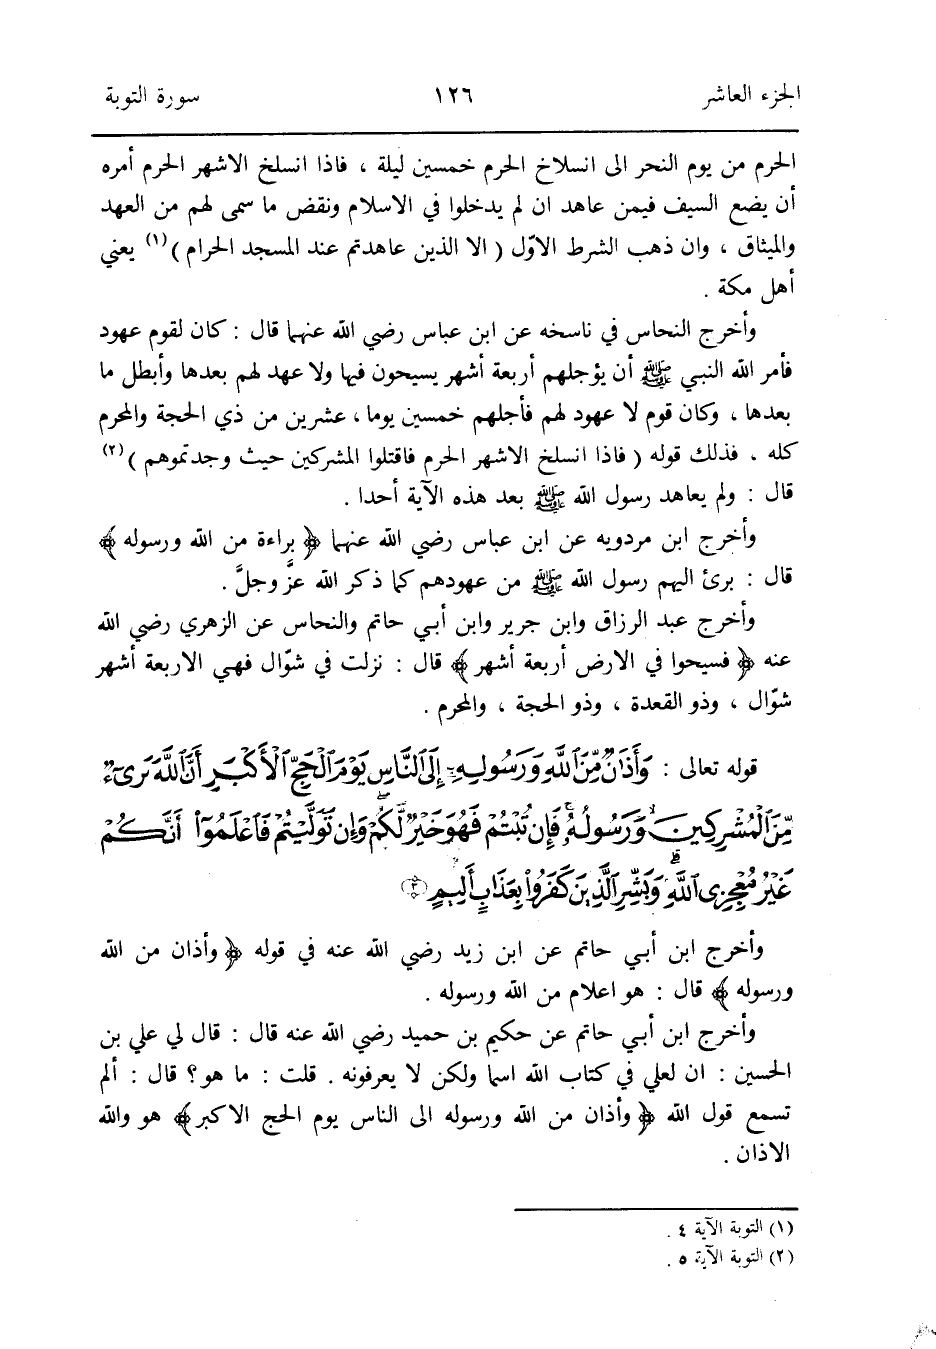 الجزء العاشر ١٢٦ سورة التوبة
الحرم من يوم النحر الى انسلاخ الحرم خمسين ليلة ، فاذا انسلخ الاشهر الحرم أمره
أن يضع السيف فيمن عاهد ان لم يدخلوا في الاسلام ونقض ما سمى لهم من العهد
والميثاق ، وان ذهب الشرط الاوّل ( الا الذين عاهدتم عند المسجد الحرام ) (١) يعني
أهل مكة .
وأخرج النحاس في ناسخه عن ابن عباس رضي الله عنهما قال : كان لقوم عهود
فأمر الله النبي ﷺ أن يؤجلهم أربعة أشهر يسيحون فيها ولا عهد لهم بعدها وأبطل ما
بعدها ، وكان قوم لا عهود لهم فأجلهم خمسين يوما ، عشرين من ذي الحجة والمحرم
كله . فذلك قوله ( فاذا انسلخ الاشهر الحرم فاقتلوا المشركين حيث وجدتموهم ) (٢)
قال : ولم يعاهد رسول الله ﷺ بعد هذه الآية أحدا .
وأخرج ابن مردويه عن ابن عباس رضي الله عنهما ﴿ براءة من الله ورسوله ﴾
قال : برئ اليهم رسول الله ﷺ من عهودهم كما ذكر الله عزَّ وجلَّ .
وأخرج عبد الرزاق وابن جرير وابن أبي حاتم والنحاس عن الزهري رضي الله
عنه ﴿ فسيحوا في الارض أربعة أشهر ﴾ قال : نزلت في شوّال فهي الاربعة أشهر
شوّال ، وذو القعدة ، وذو الحجة ، والمحرم .
قوله تعالى : وَأَذَٰنٌ مِّنَ ٱللَّهِ وَرَسُولِهِۦٓ إِلَى ٱلنَّاسِ يَوْمَ ٱلْحَجِّ ٱلْأَكْبَرِ أَنَّ ٱللَّهَ بَرِىٓءٌ
مِّنَ ٱلْمُشْرِكِينَ وَرَسُولُهُۥ فَإِن تُبْتُمْ فَهُوَ خَيْرٌ لَّكُمْ وَإِن تَوَلَّيْتُمْ فَٱعْلَمُوٓا۟ أَنَّكُمْ
غَيْرُ مُعْجِزِى ٱللَّهِ وَبَشِّرِ ٱلَّذِينَ كَفَرُوا۟ بِعَذَابٍ أَلِيمٍ ﴿٣﴾
وأخرج ابن أبي حاتم عن ابن زيد رضي الله عنه في قوله ﴿ وأذان من الله
ورسوله ﴾ قال : هو اعلام من الله ورسوله .
وأخرج ابن أبي حاتم عن حكيم بن حميد رضي الله عنه قال : قال لي علي بن
الحسين : ان لعلي في كتاب الله اسما ولكن لا يعرفونه . قلت : ما هو؟ قال : ألم
تسمع قول الله ﴿ وأذان من الله ورسوله الى الناس يوم الحج الاكبر﴾ هو والله
الاذان .
(١) التوبة الآية ٤ .
(٢) التوبة الآية ٥ .